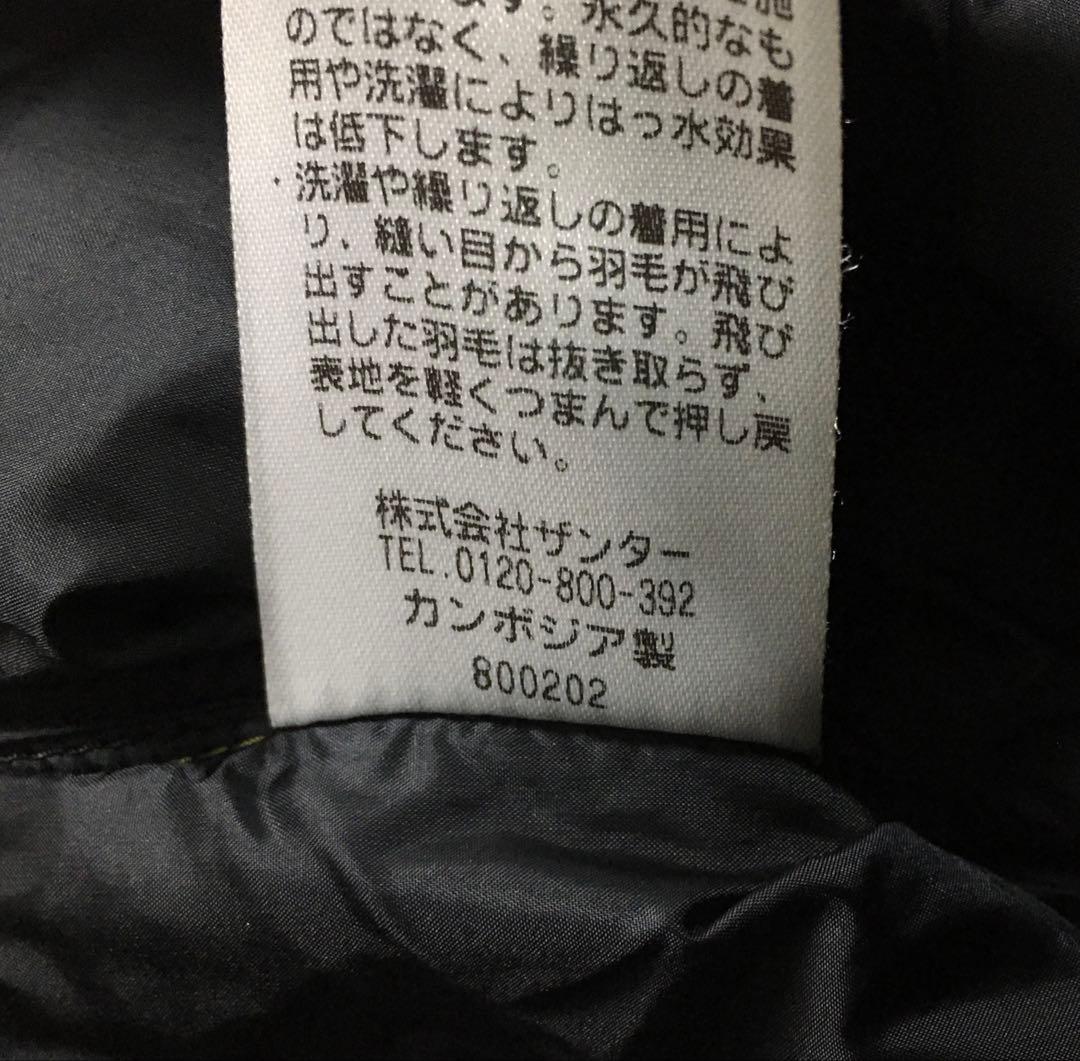 ます。永久的なも
のではなく、繰り返しの着
用や洗濯によりはっ水効果
は低下します。
・洗濯や繰り返しの着用によ
り、縫い目から羽毛が飛び
出すことがあります。飛び
出した羽毛は抜き取らず、
表地を軽くつまんで押し戻
してください。
株式会社ザンター
TEL.0120-800-392
カンボジア製
800202